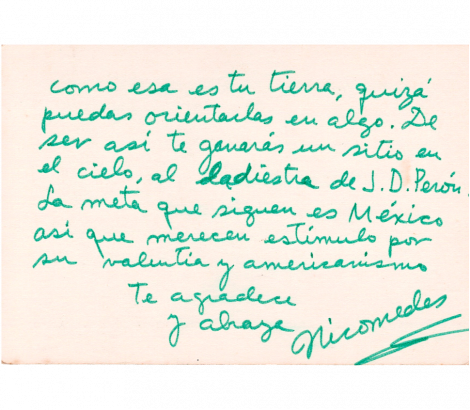 como esa es tu tierra, quizá
puedas orientarlas en algo. De
ser así te ganarás un sitio en
el cielo, al ladiestra de J.D. Perón.
La meta que siguen es México
así que merecen estímulo por
su valentia y americanismo
Te agradece
y abraza
Nicomedes